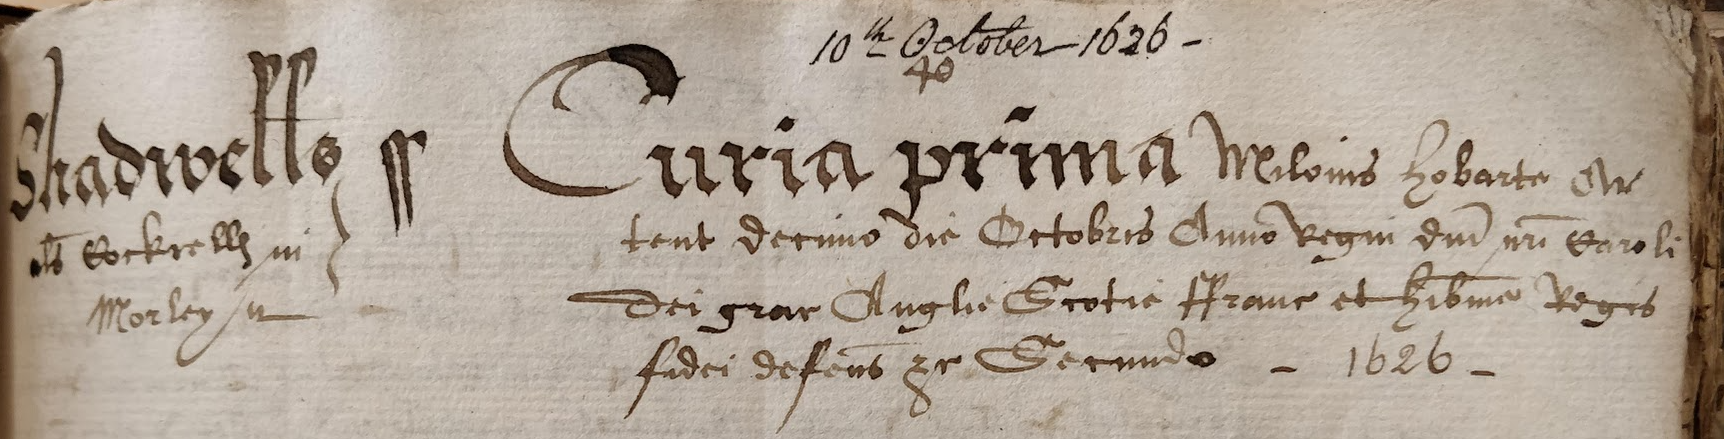 10th October 1626 -
40
Shadwells ss Curia prima Milonis Hobarte Ar
als Cockrells in tent decimo die Octobris Anno Regni dni nri Caroli
Morley Dei grac Anglie Scotie ffranc et Hibnie Regis
fidei defens zc Secundo - 1626 -